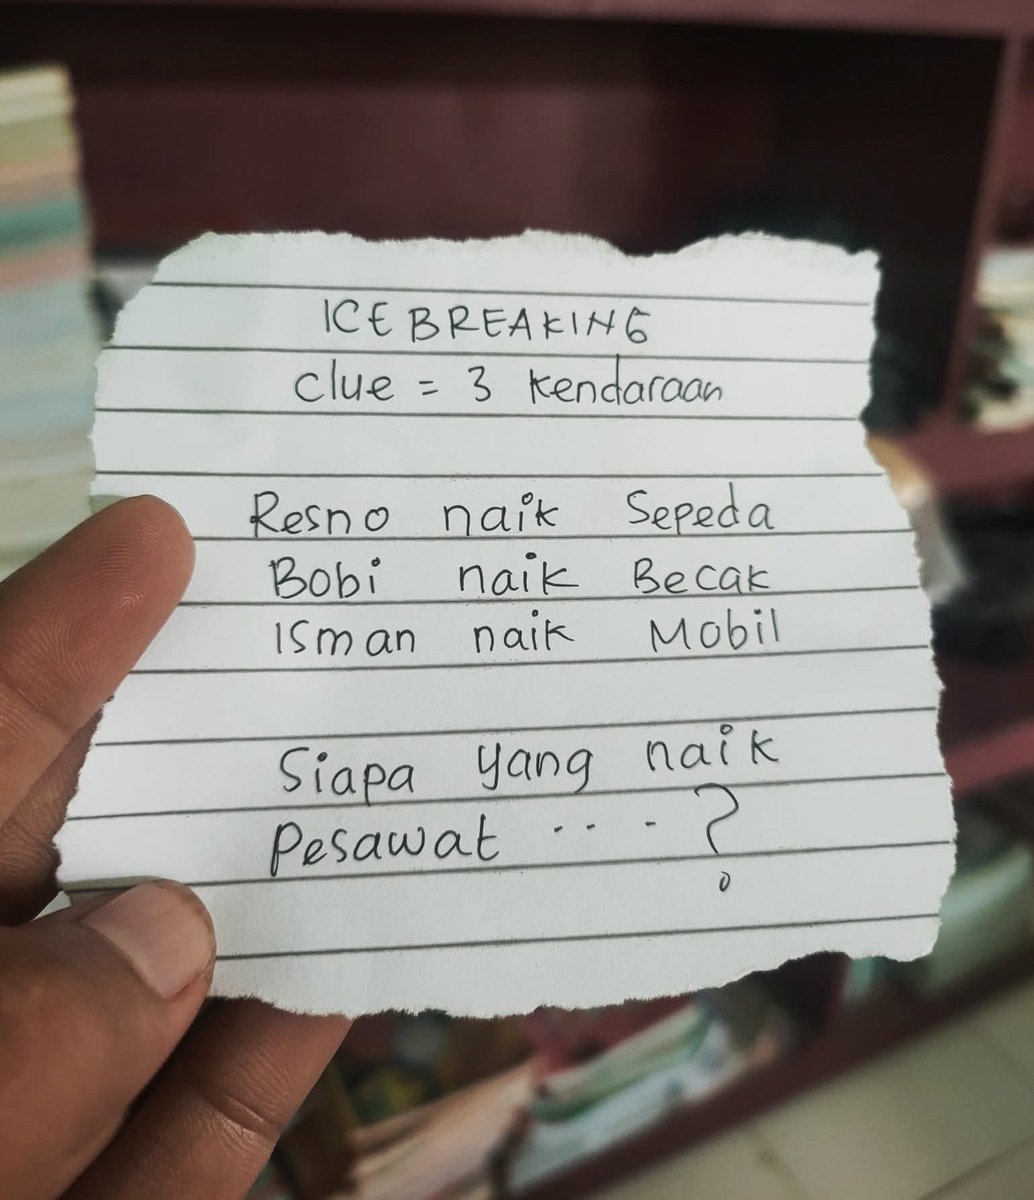 ICE BREAKING
clue = 3 kendaraan
Resno naik Sepeda
Bobi naik Becak
Isman naik Mobil
Siapa yang naik
Pesawat .... ?